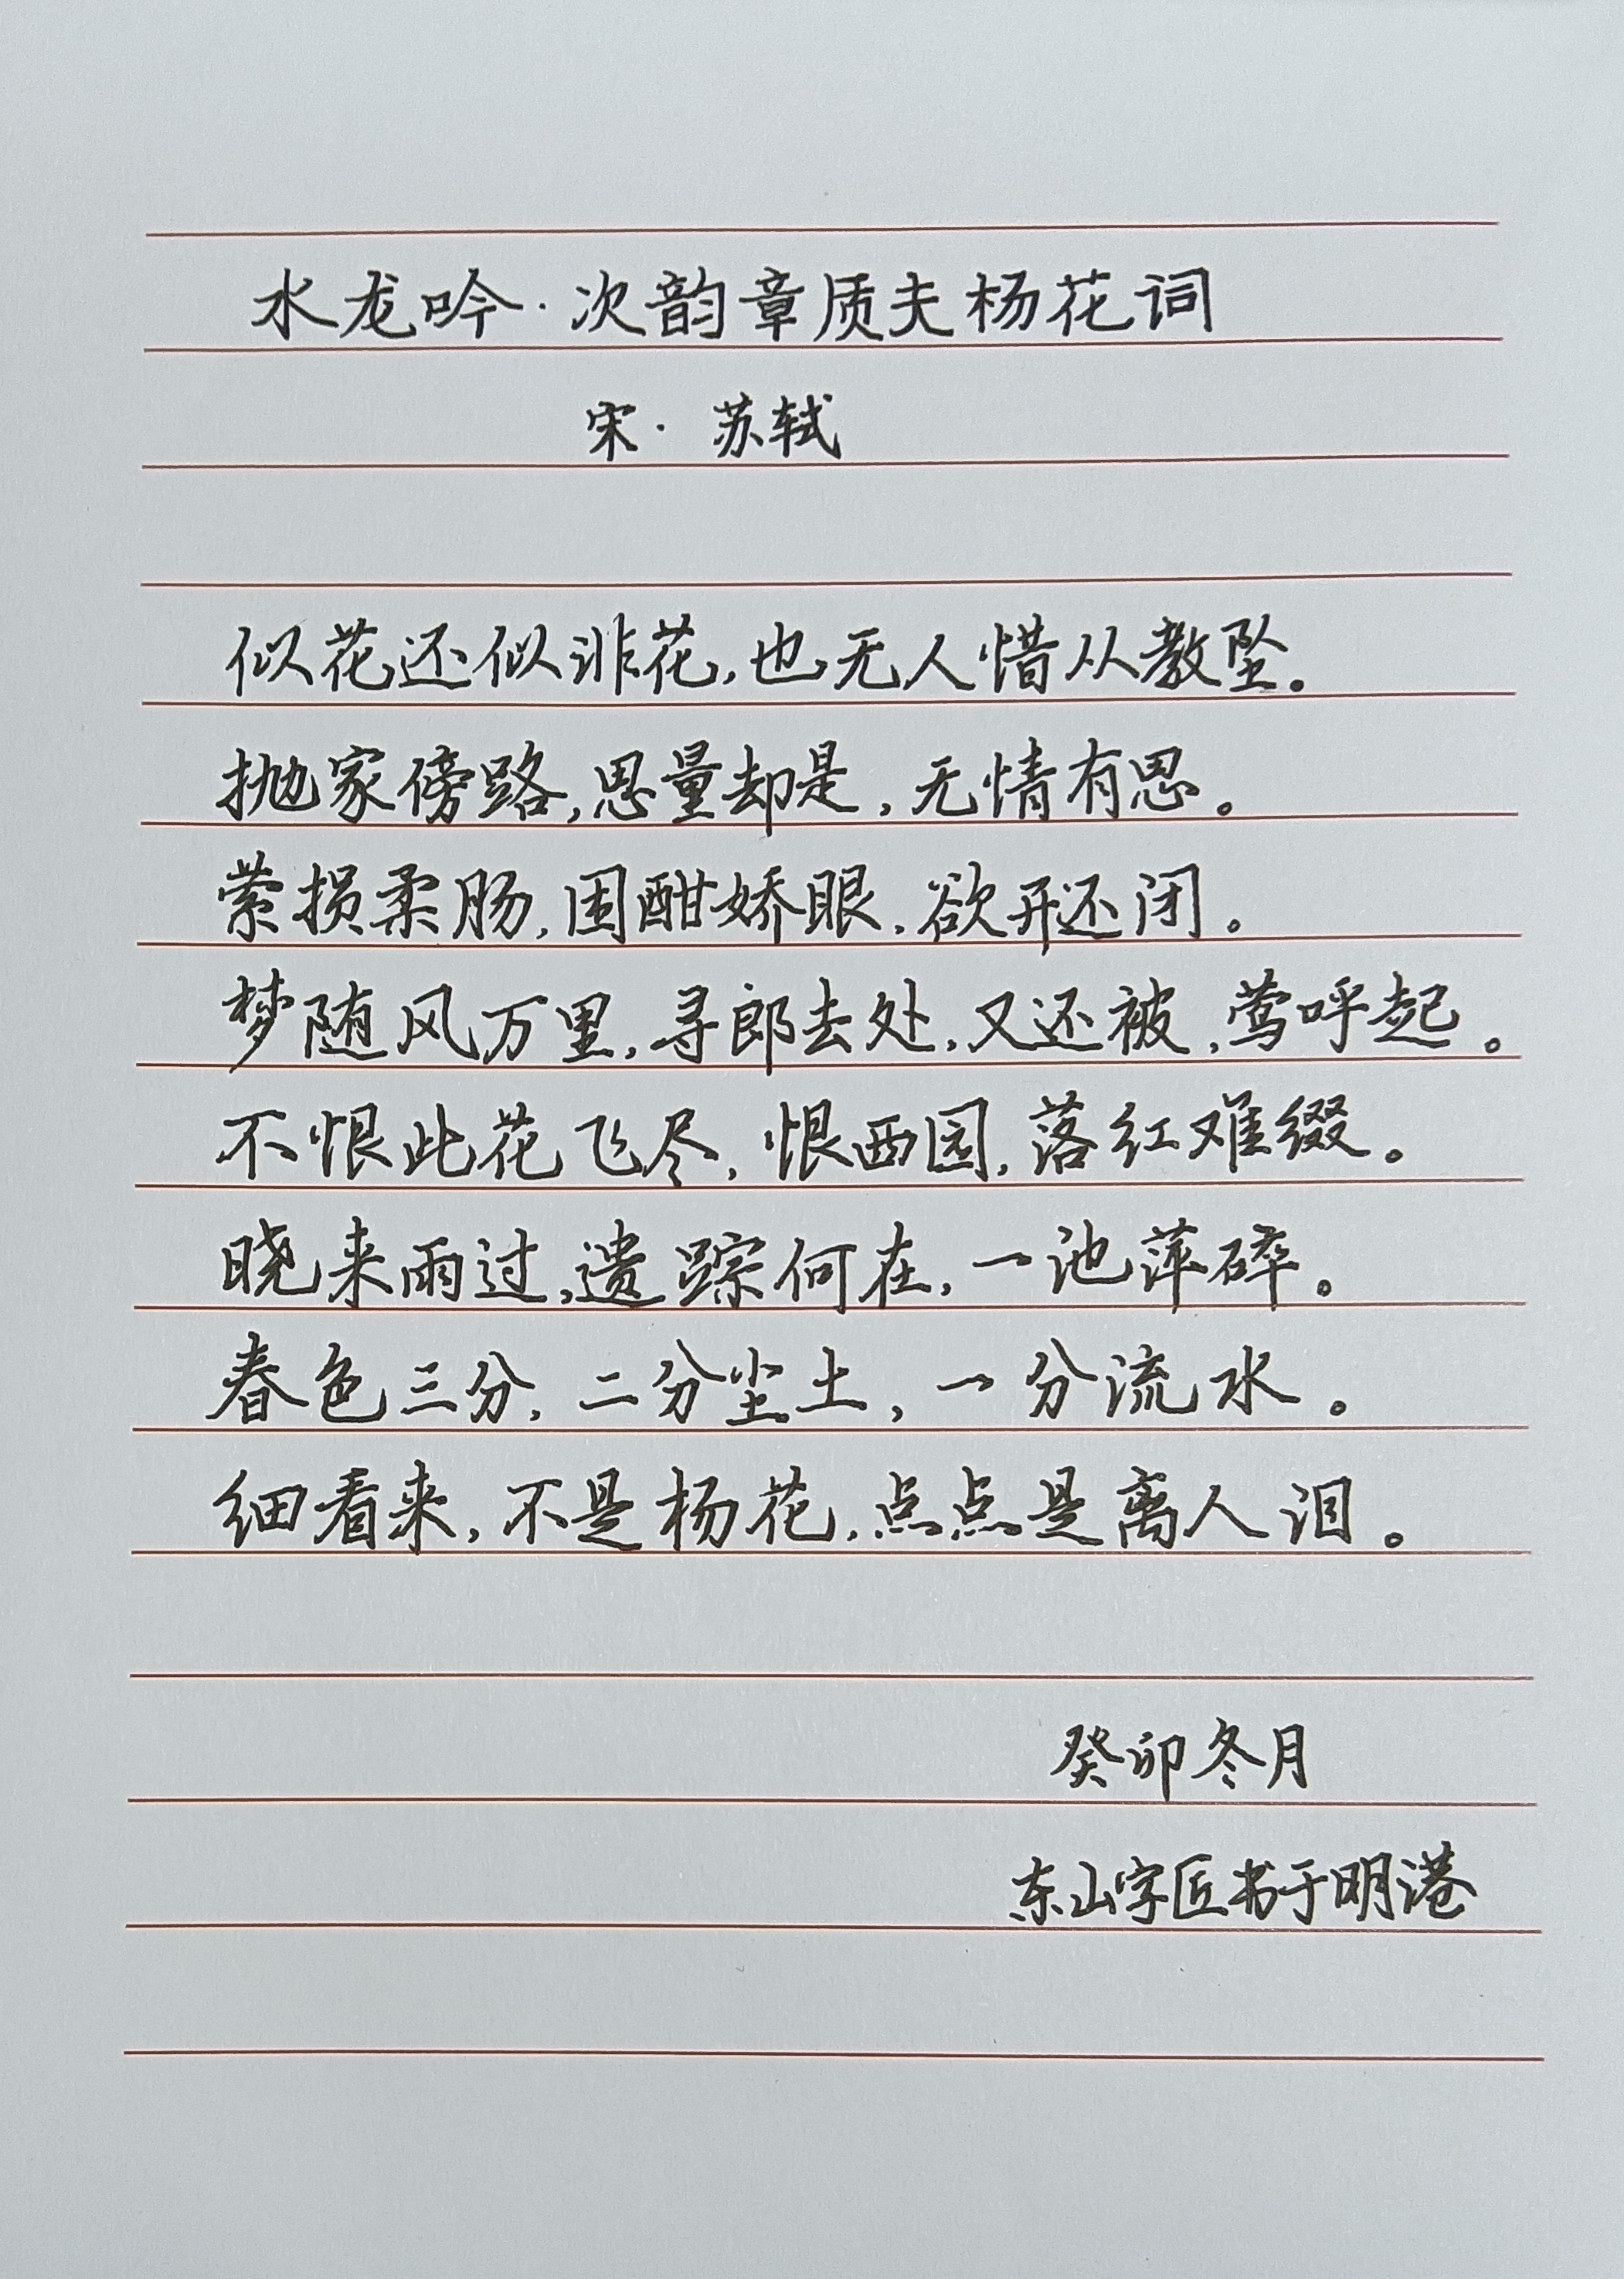 水龙吟·次韵章质夫杨花词
宋·苏轼
似花还似非花,也无人惜从教坠。
抛家傍路,思量却是,无情有思。
萦损柔肠,困酣娇眼,欲开还闭。
梦随风万里,寻郎去处,又还被,莺呼起。
不恨此花飞尽,恨西园,落红难缀。
晓来雨过,遗踪何在,一池萍碎。
春色三分,二分尘土,一分流水。
细看来,不是杨花,点点是离人泪。
癸卯冬月
东山字匠书于明港